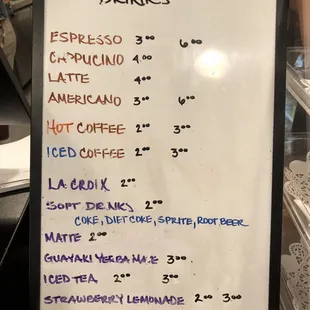 DRINKS
ESPRESSO 3.00 6.00
CAPPUCINO 4.00
LATTE 4.00
AMERICANO 3.00 6.00
HOT COFFEE 2.00 3.00
ICED COFFEE 2.00 3.00
LA CROIX 2.00
SOFT DRINKS 2.00
COKE, DIET COKE, SPRITE, ROOT BEER
MATTE 2.00
GUAYAKI YERBA MATE 3.00
ICED TEA 2.00 3.00
STRAWBERRY LEMONADE 2.00 3.00